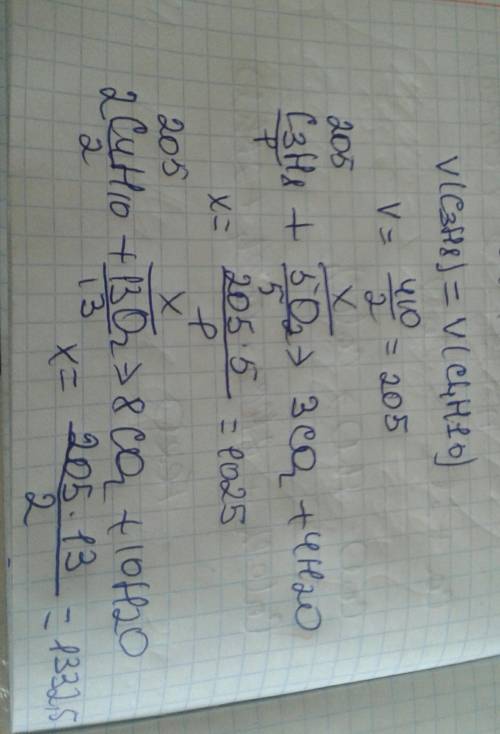 V(C3H8) = V(C4H10)
V = 410/2 = 205
205 x
C3H8 + 5O2 > 3CO2 + 4H2O
1 5
x = 205·5/1 = 1025
205 x
2C4H10 + 13O2 > 8CO2 + 10H2O
2 13
x = 205·13/2 = 1332,5